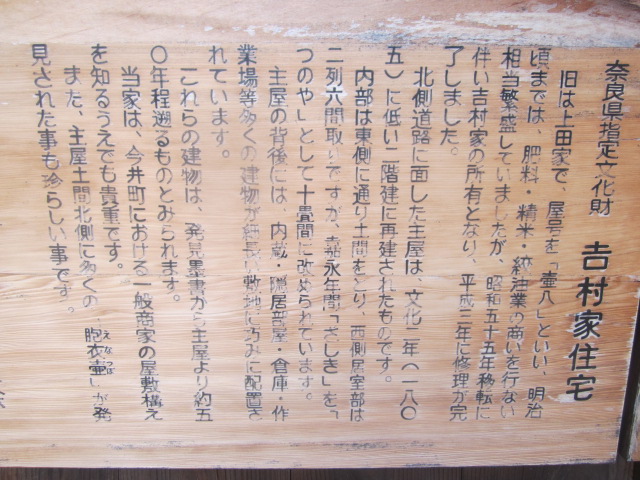 奈良県指定文化財　𠮷村家住宅
旧は上田家で、屋号を「壷八」といい、明治
頃までは、肥料・精米・綿油業の商いを行ない
相当繁盛していましたが、昭和五十五年移転に
伴い𠮷村家の所有となり、平成二年に修理が完
了しました。
北側道路に面した主屋は、文化二年（一八〇
五）に低い二階建に再建されたものです。
内部は東側に通り土間をとり、西側居室部は
二列六間取りですが、嘉永年間「ざしき」を「
つのや」として十畳間に改められています。
主屋の背後には、内蔵・隠居部屋・倉庫・作
業場等多くの建物が細長い敷地に巧みに配置さ
れています。
これらの建物は、発見墨書から主屋より約五
〇年程遡るものとみられます。
当家は、今井町における一般商家の屋敷構え
を知るうえでも貴重です。
また、主屋土間北側に多くの「胞衣壷」が発
えなつぼ
見された事も珍らしい事です。